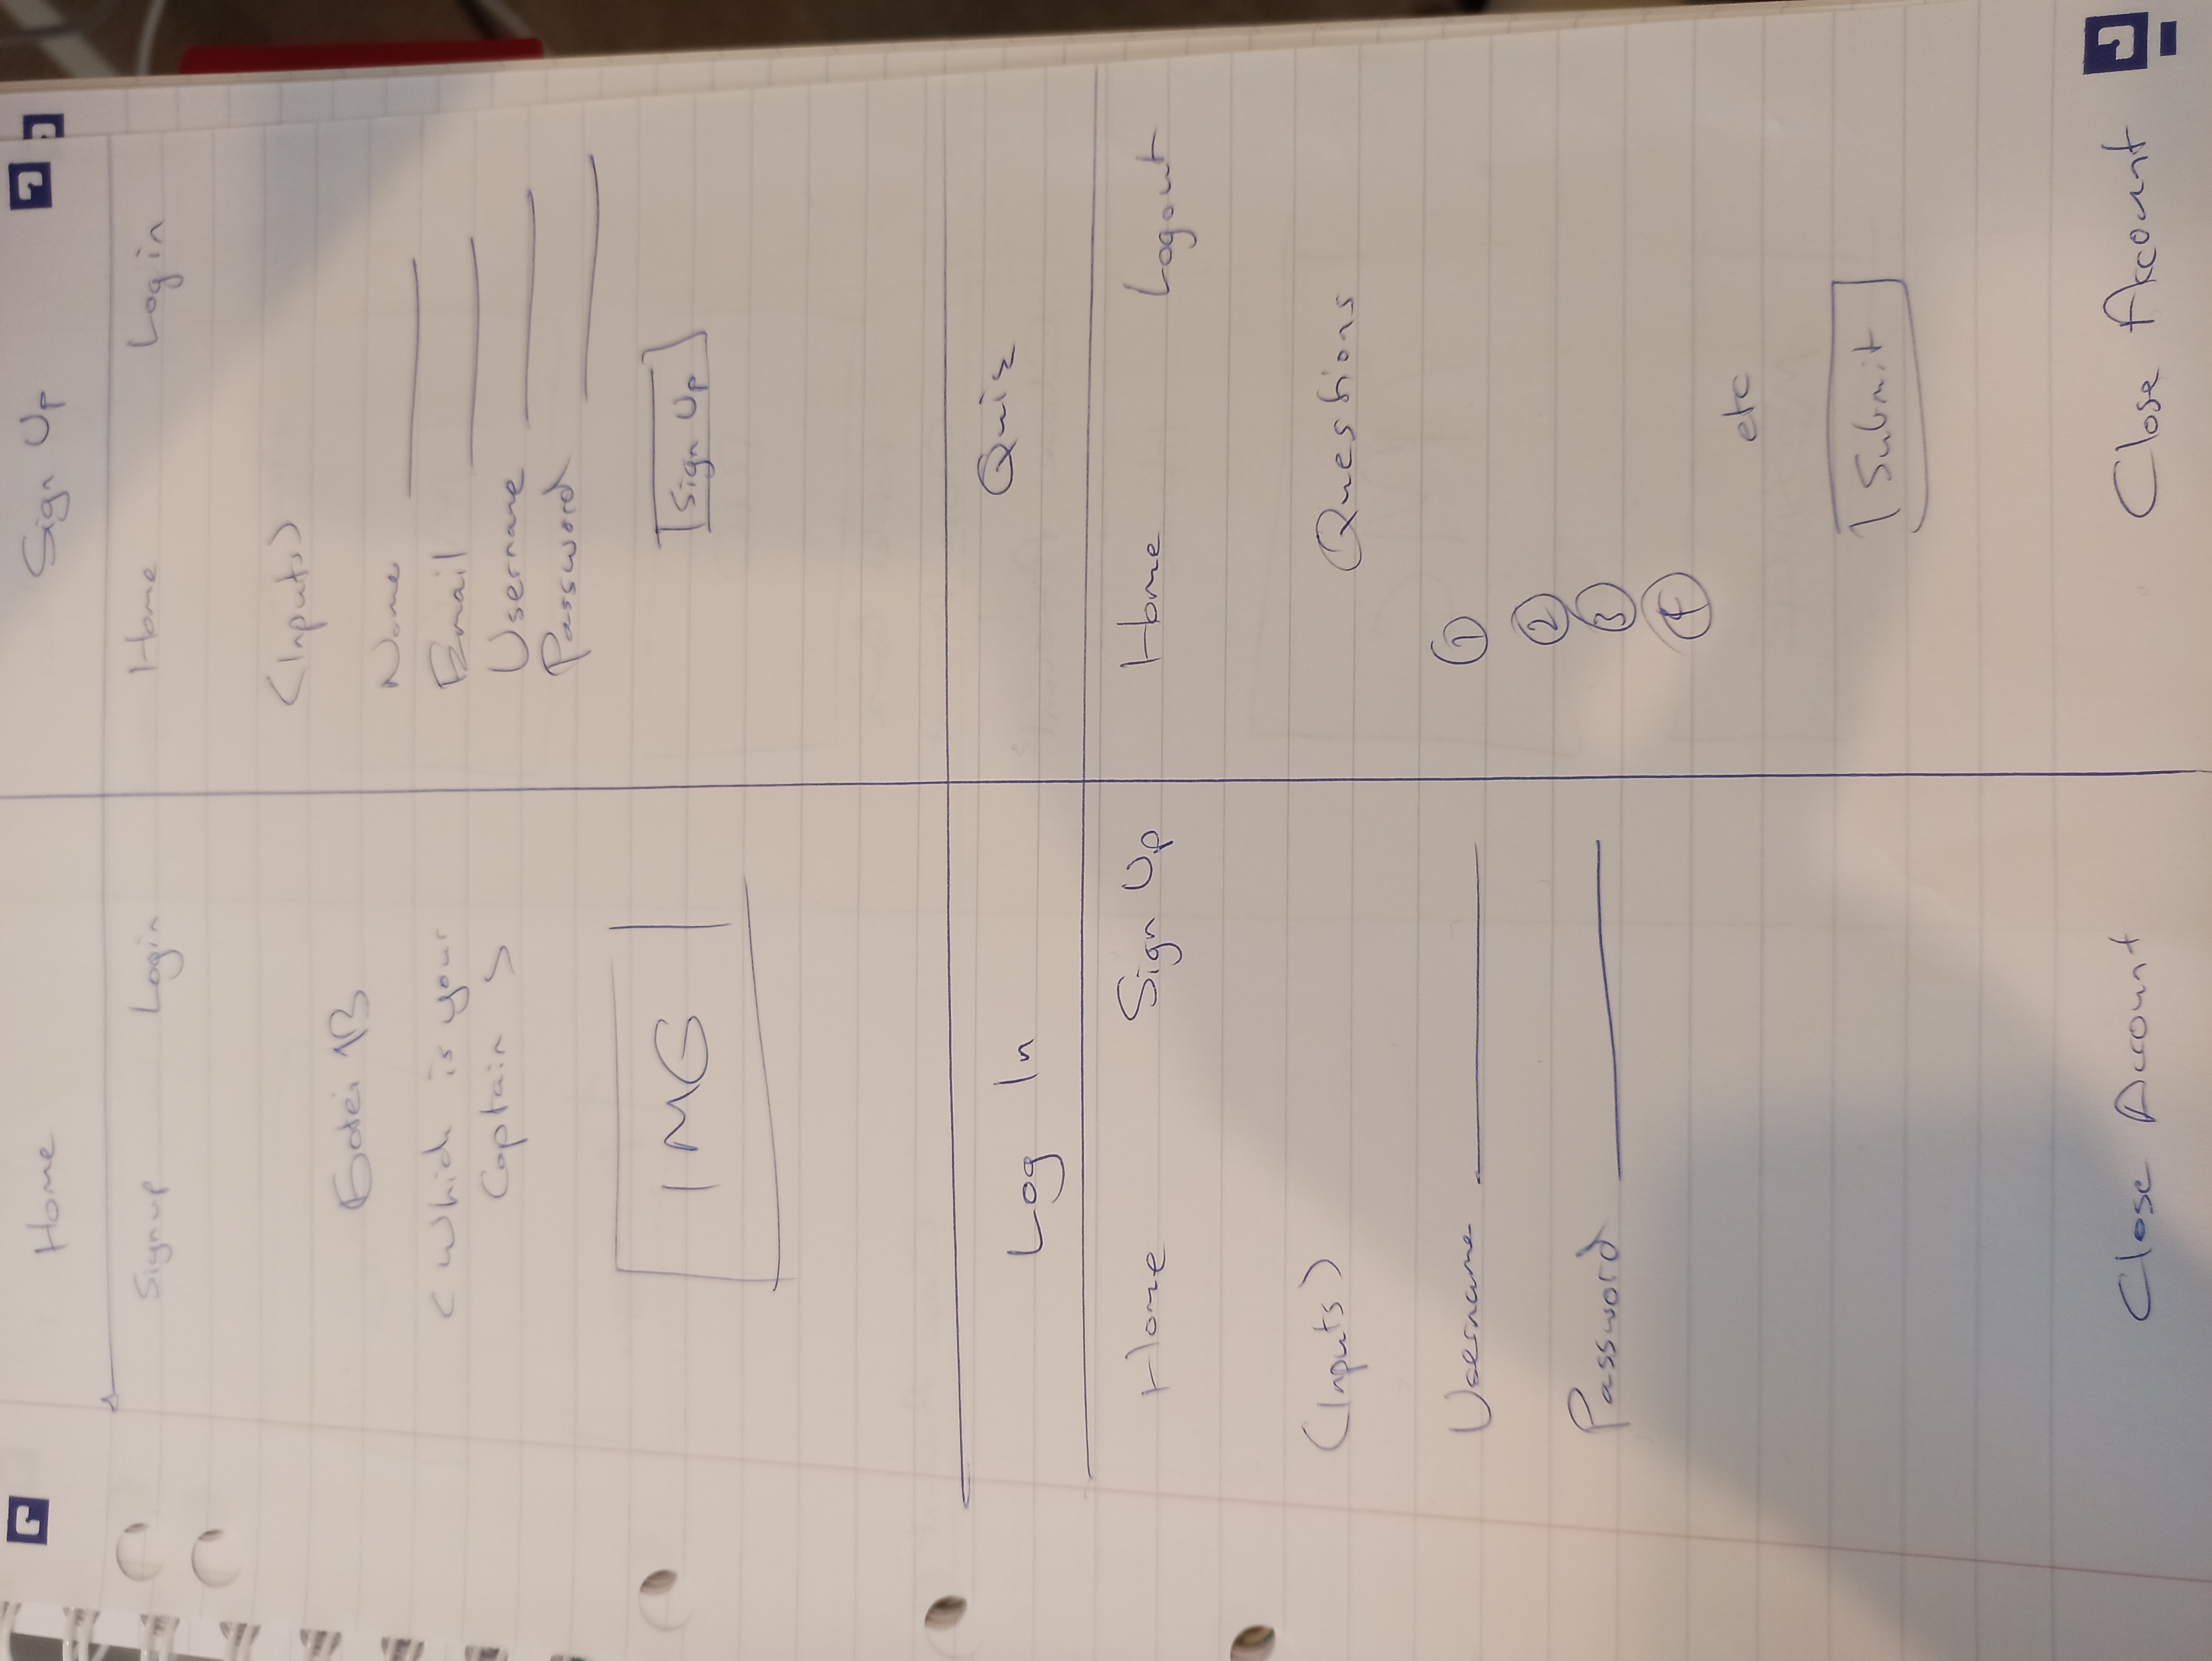 Home
Signup Login
(Which is your
Captain
IMG
Sign Up
Home Login
(Inputs)
Name
Email
Username
Password
Sign Up
Log In
Home Sign Up
(Inputs)
Username
Password
Close Account
Quiz
Home Logout
Questions
1
2
3
4
etc
Submit
Close Account